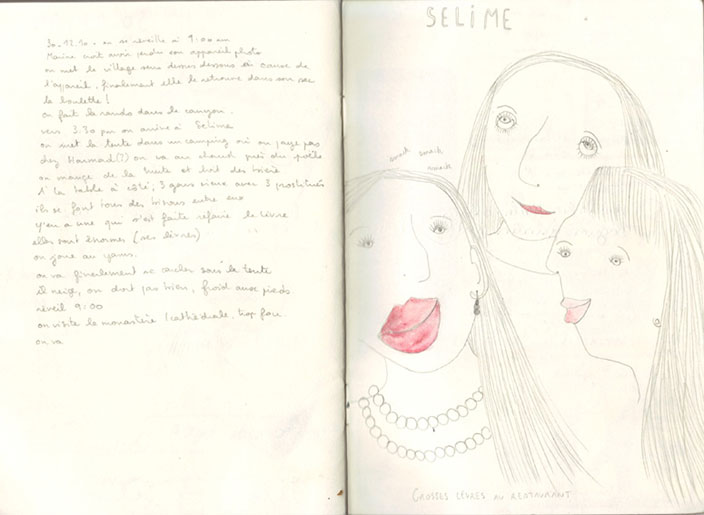 30.12.10. on se réveille à 9:00 am
Marina croit avoir perdu son appareil photo
on met le village sens dessus dessous à cause de
l'appareil, finalement elle le retrouve dans son sac
la boulette !
on fait la rando dans le canyon.
vers 3.30 pm on arrive à Selime
on met la tente dans un camping où on paye pas
chez (?) on va au chaud près du poêle
on mange de la truite et boit des bières
A la table à côté, 3 gars avec 3 prostituées
ils se font tous des bisous entre eux
y'en a une qui s'est faite refaire la lèvre
elles sont énormes (ses lèvres)
on joue au yams.
on va finalement se cacher sous la tente
il neige, on dort pas bien, froid aux pieds.
réveil 9:00
on visite le monastère/cathédrale, trop fou
on va
SELIME
smack smack
smack
GROSSES LÈVRES AU RESTAURANT